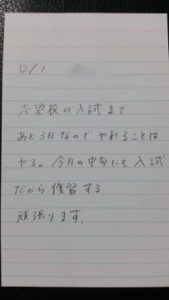 12/1
志望校の入試まで
あと3日なのでやれることは
やる。今月の中旬にも入試
だから復習する
頑張ります。